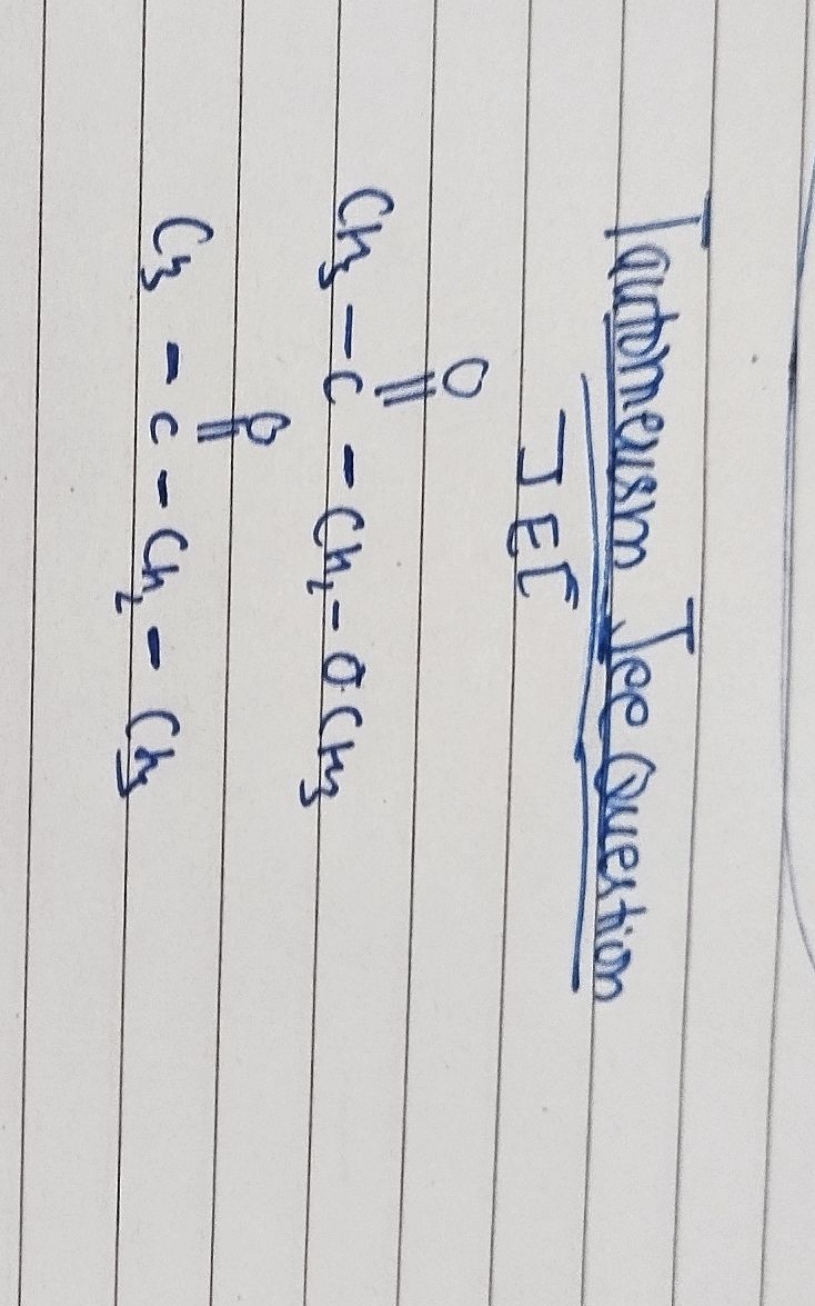 Tautomerism Jee Question
JEE
O
||
CH3 - C - CH2 - OCH3
O
||
C3 - C - CH2 - CH3